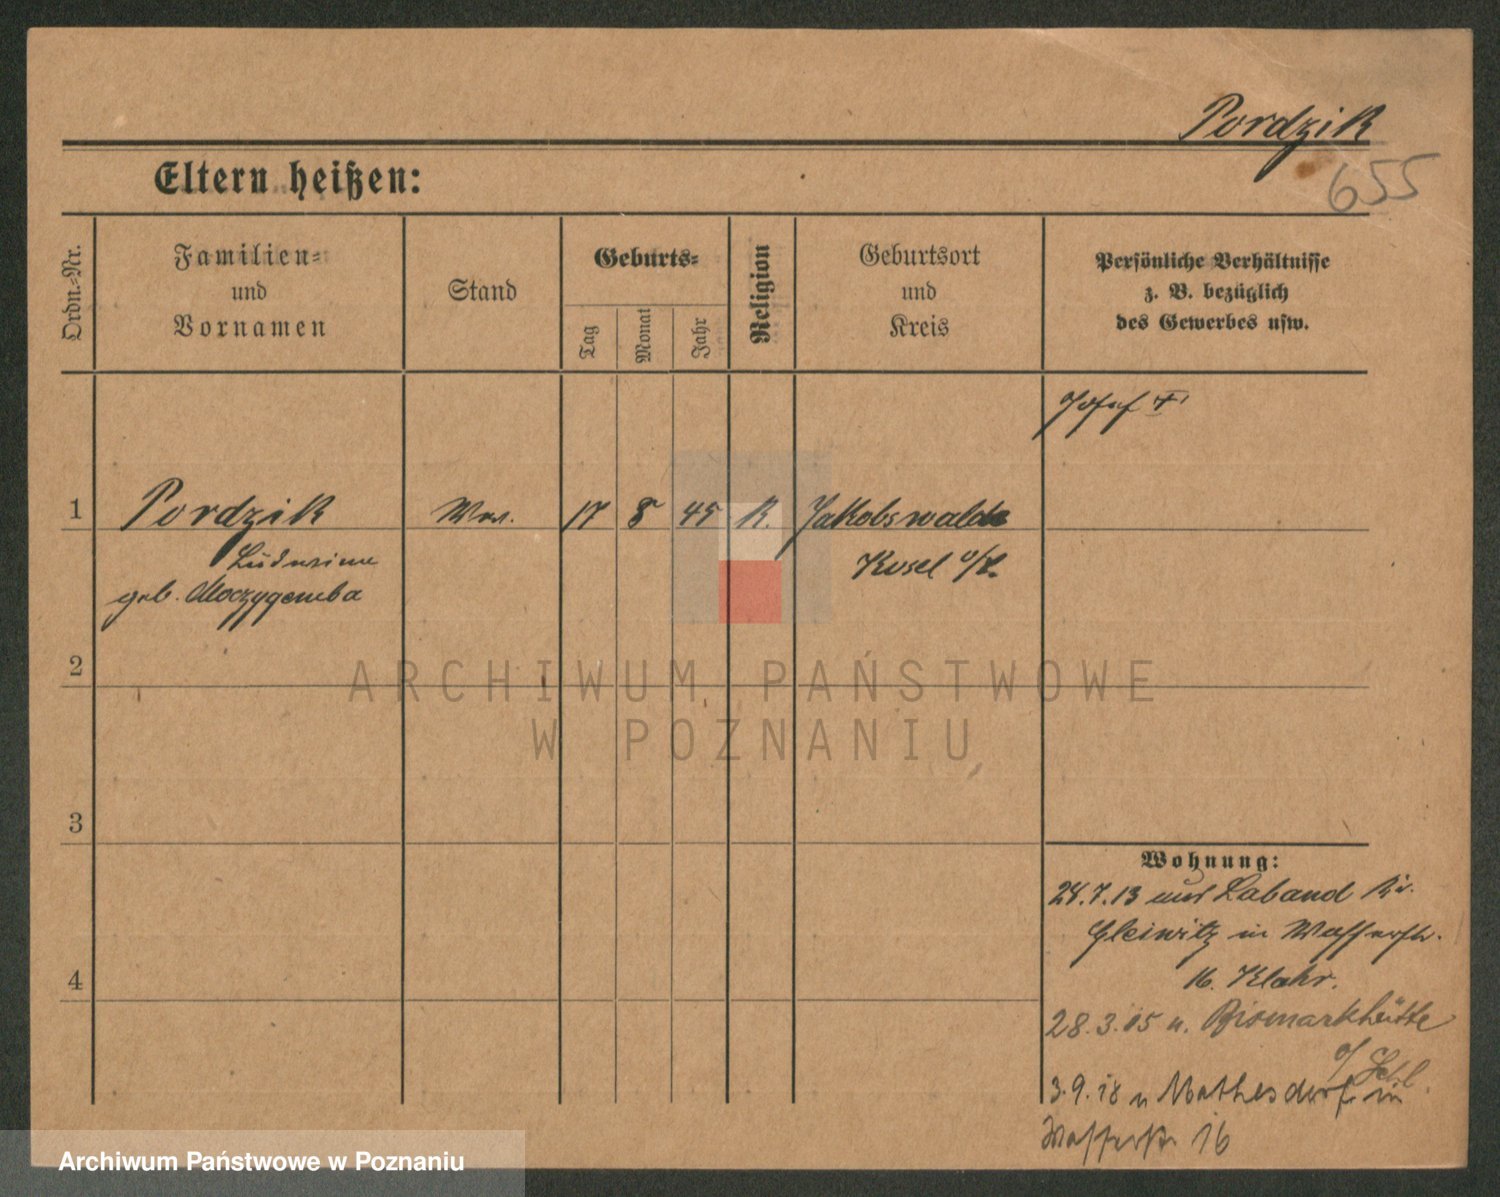 Pordzik
655
Eltern heißen:
Ordn.-Nr.
Familien-
und
Vornamen
Stand
Geburts-
Tag
Monat
Jahr
Religion
Geburtsort
und
Kreis
Persönliche Verhältnisse
z. B. bezüglich
des Gewerbes usw.
Josef †
1 Pordzik Ww. 17 8 45 K. Jakobswalde
geb. Moczygemba
Kosel o/S.
2
3
4
Wohnung:
24.7.13 aus Laband Kr.
Gleiwitz in Wasserstr.
16.
28.3.15 n. Bismarkhütte
o/Schl.
3.9.18 v Mathesdorf in
Wasserstr 16
ARCHIWUM PAŃSTWOWE
W POZNANIU
Archiwum Państwowe w Poznaniu